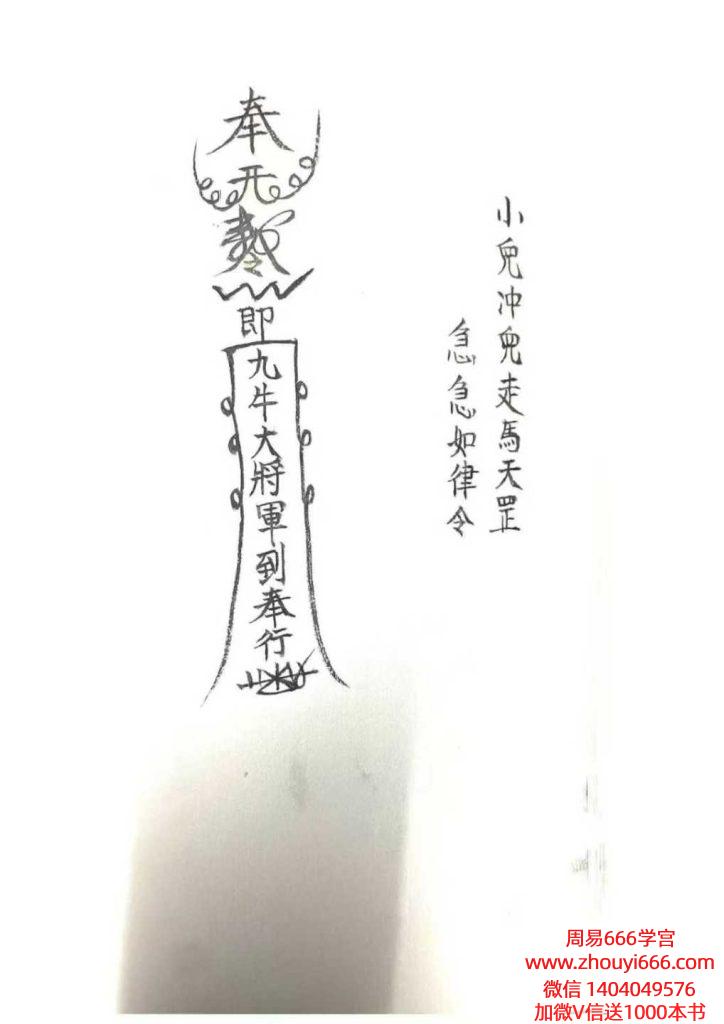 小兒冲兒走馬天罡
急急如律令
奉
即
九牛大將軍到奉行
周易666学宫
www.zhouyi666.com
微信 1404049576
加微V信送1000本书